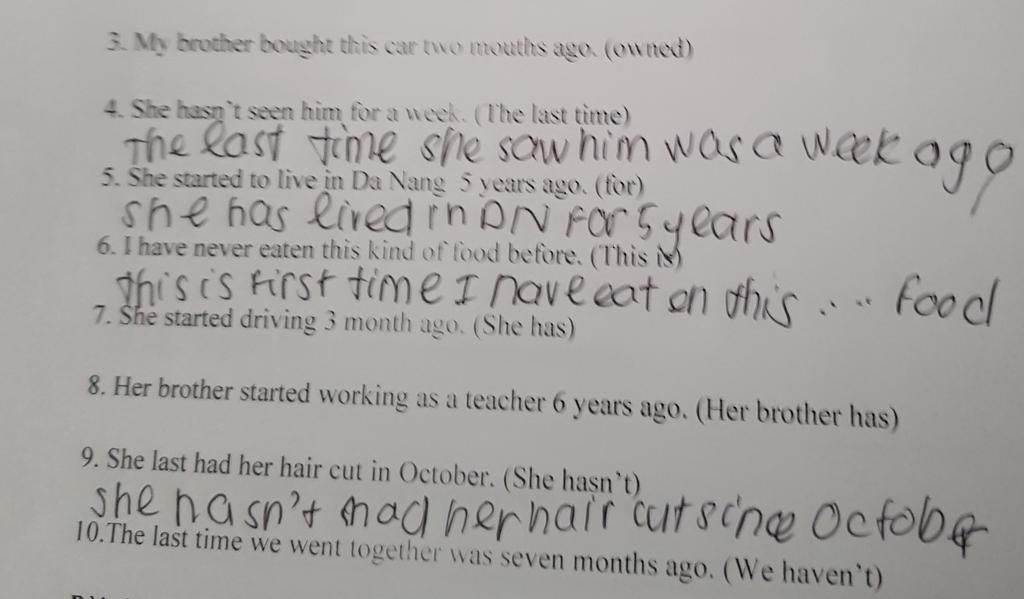 3. My brother bought this car two mouths ago. (owned)
4. She hasn't seen him for a week. (The last time)
The last time she saw him was a week ago
5. She started to live in Da Nang 5 years ago. (for)
she has lived in DN For 5 years
6. I have never eaten this kind of food before. (This is)
this is First time I have eat en this . .. Food
7. She started driving 3 month ago. (She has)
8. Her brother started working as a teacher 6 years ago. (Her brother has)
9. She last had her hair cut in October. (She hasn't)
she hasn't had her hair cut since October
10.The last time we went together was seven months ago. (We haven't)